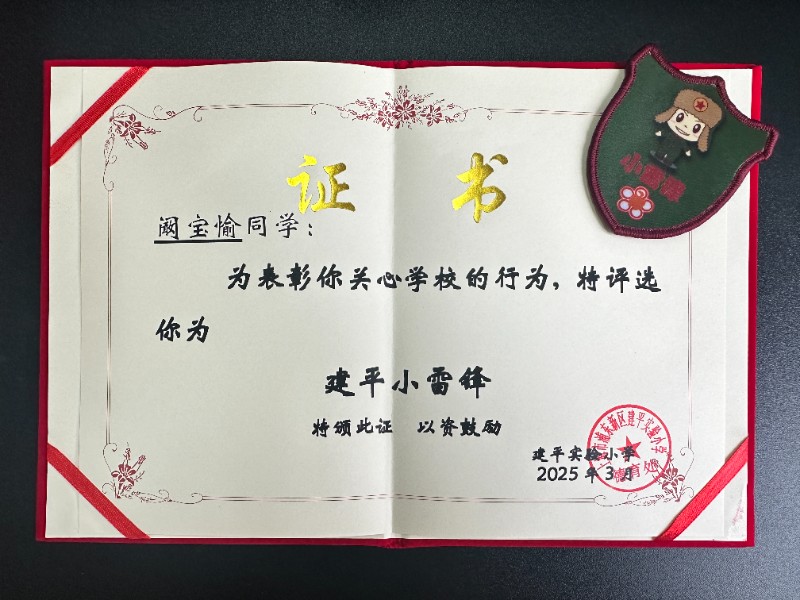 证 书
阚宝愉同学：
为表彰你关心学校的行为，特评选
你为
建平小雷锋
特颁此证 以资鼓励
建平实验小学
2025年3月
小雷锋
上海市浦东新区建平实验小学
德育处